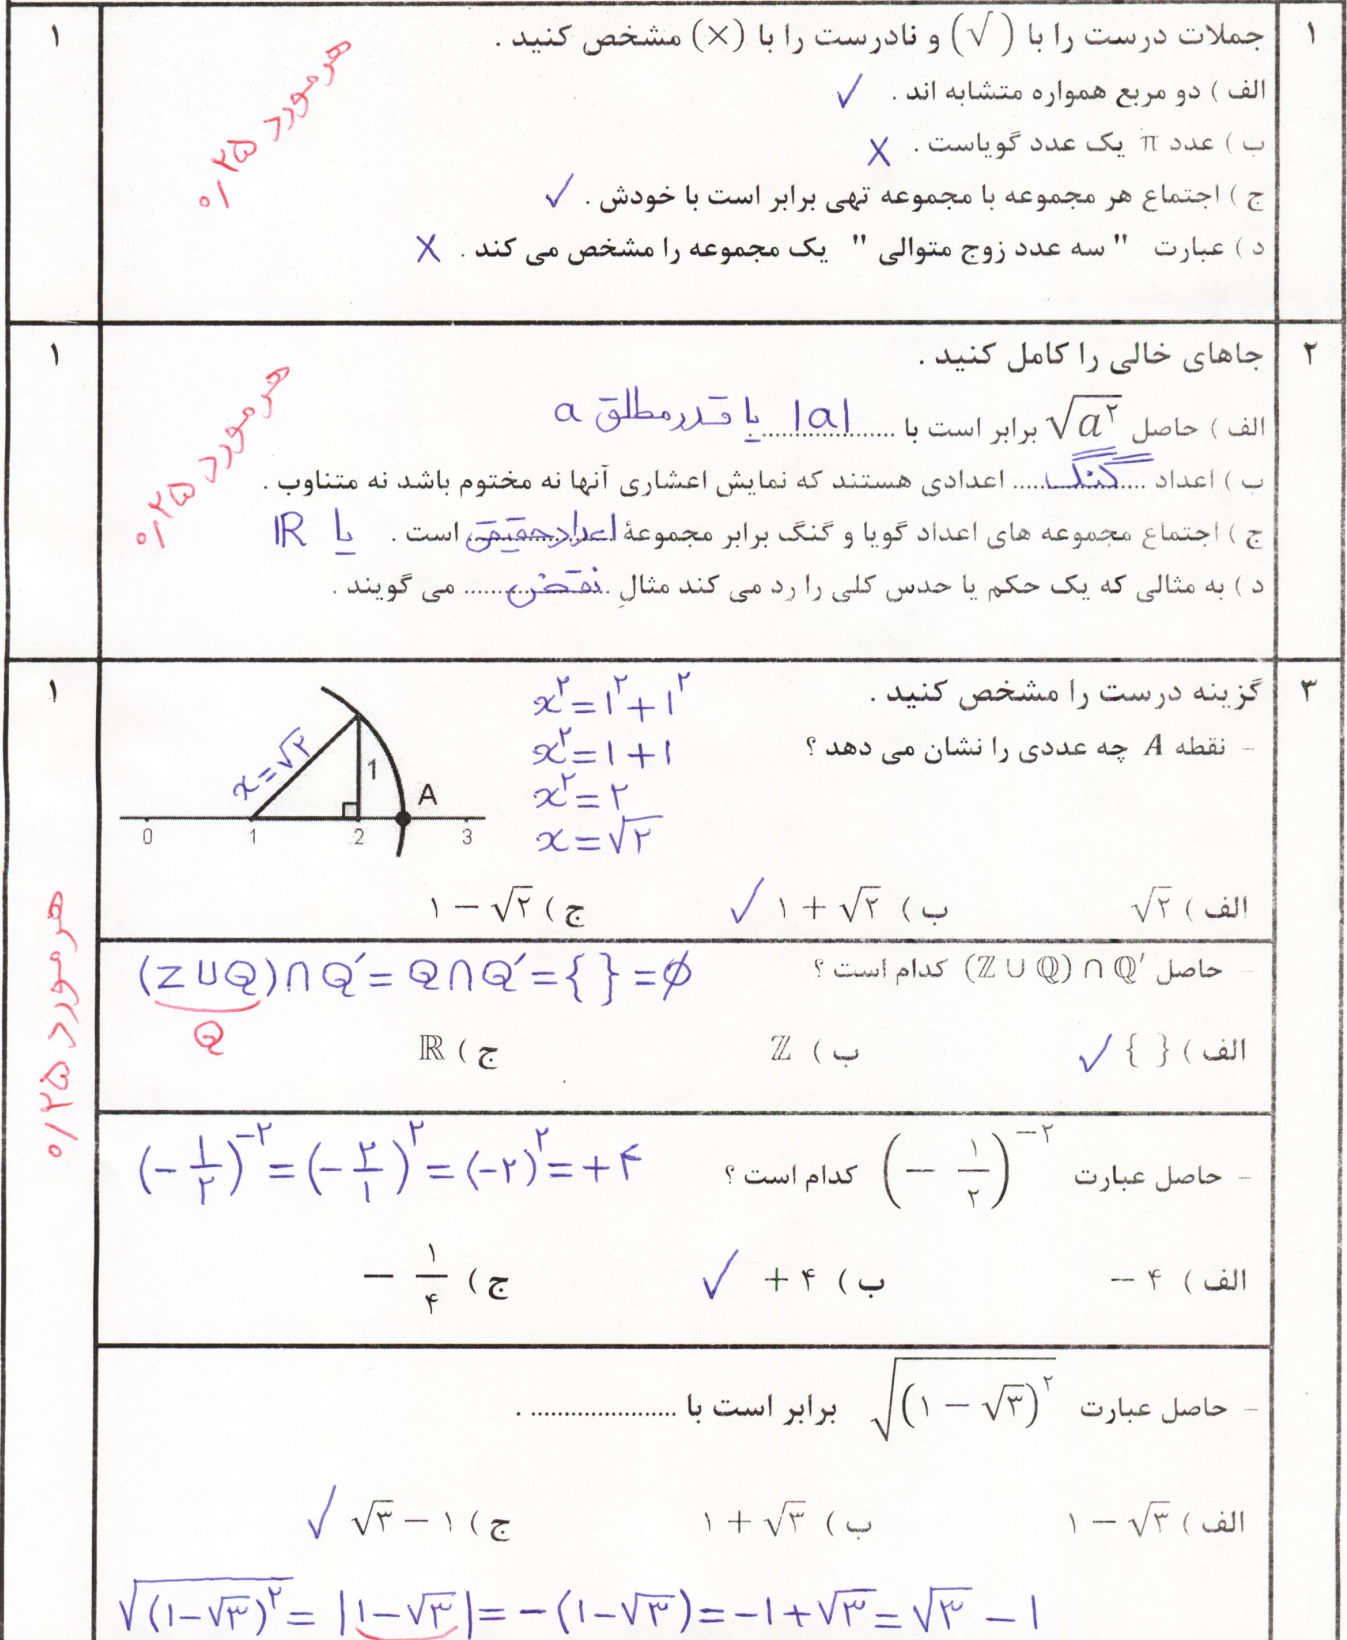 ۱ جملات درست را با (√) و نادرست را با (×) مشخص کنید . ۱
الف ) دو مربع همواره متشابه اند . ✓
ب ) عدد π یک عدد گویاست . ×
ج ) اجتماع هر مجموعه با مجموعه تهی برابر است با خودش . ✓
د ) عبارت " سه عدد زوج متوالی " یک مجموعه را مشخص می کند . ×
هر مورد ۰/۲۵
۲ جاهای خالی را کامل کنید . ۱
الف ) حاصل √a² برابر است با |a| یا قدرمطلق a
ب ) اعداد گنگ اعدادی هستند که نمایش اعشاری آنها نه مختوم باشد نه متناوب .
ج ) اجتماع مجموعه های اعداد گویا و گنگ برابر مجموعهٔ اعداد حقیقی است . یا ℝ
د ) به مثالی که یک حکم یا حدس کلی را رد می کند مثالِ نقض می گویند .
هر مورد ۰/۲۵
۳ گزینه درست را مشخص کنید . ۱
- نقطه A چه عددی را نشان می دهد ؟
x² = ۱² + ۱²
x² = ۱ + ۱
x² = ۲
x = √۲
x = √۲
1
A
0 1 2 3
الف ) √۲ ب ) ۱ + √۲ ✓ ج ) ۱ − √۲
هر مورد ۰/۲۵
- حاصل (ℤ ∪ ℚ) ∩ ℚ′ کدام است ؟
(Z ∪ Q) ∩ Q′ = Q ∩ Q′ = { } = ∅
Q
الف ) { } ✓ ب ) ℤ ج ) ℝ
- حاصل عبارت (− ۱/۲)^−۲ کدام است ؟
(− ۱/۲)^−۲ = (− ۲/۱)^۲ = (−۲)^۲ = +۴
الف ) − ۴ ب ) + ۴ ✓ ج ) − ۱/۴
- حاصل عبارت √(۱ − √۳)² برابر است با ...................... .
الف ) ۱ − √۳ ب ) ۱ + √۳ ج ) √۳ − ۱ ✓
√(۱−√۳)² = |۱−√۳| = −(۱−√۳) = −۱+√۳ = √۳ − ۱